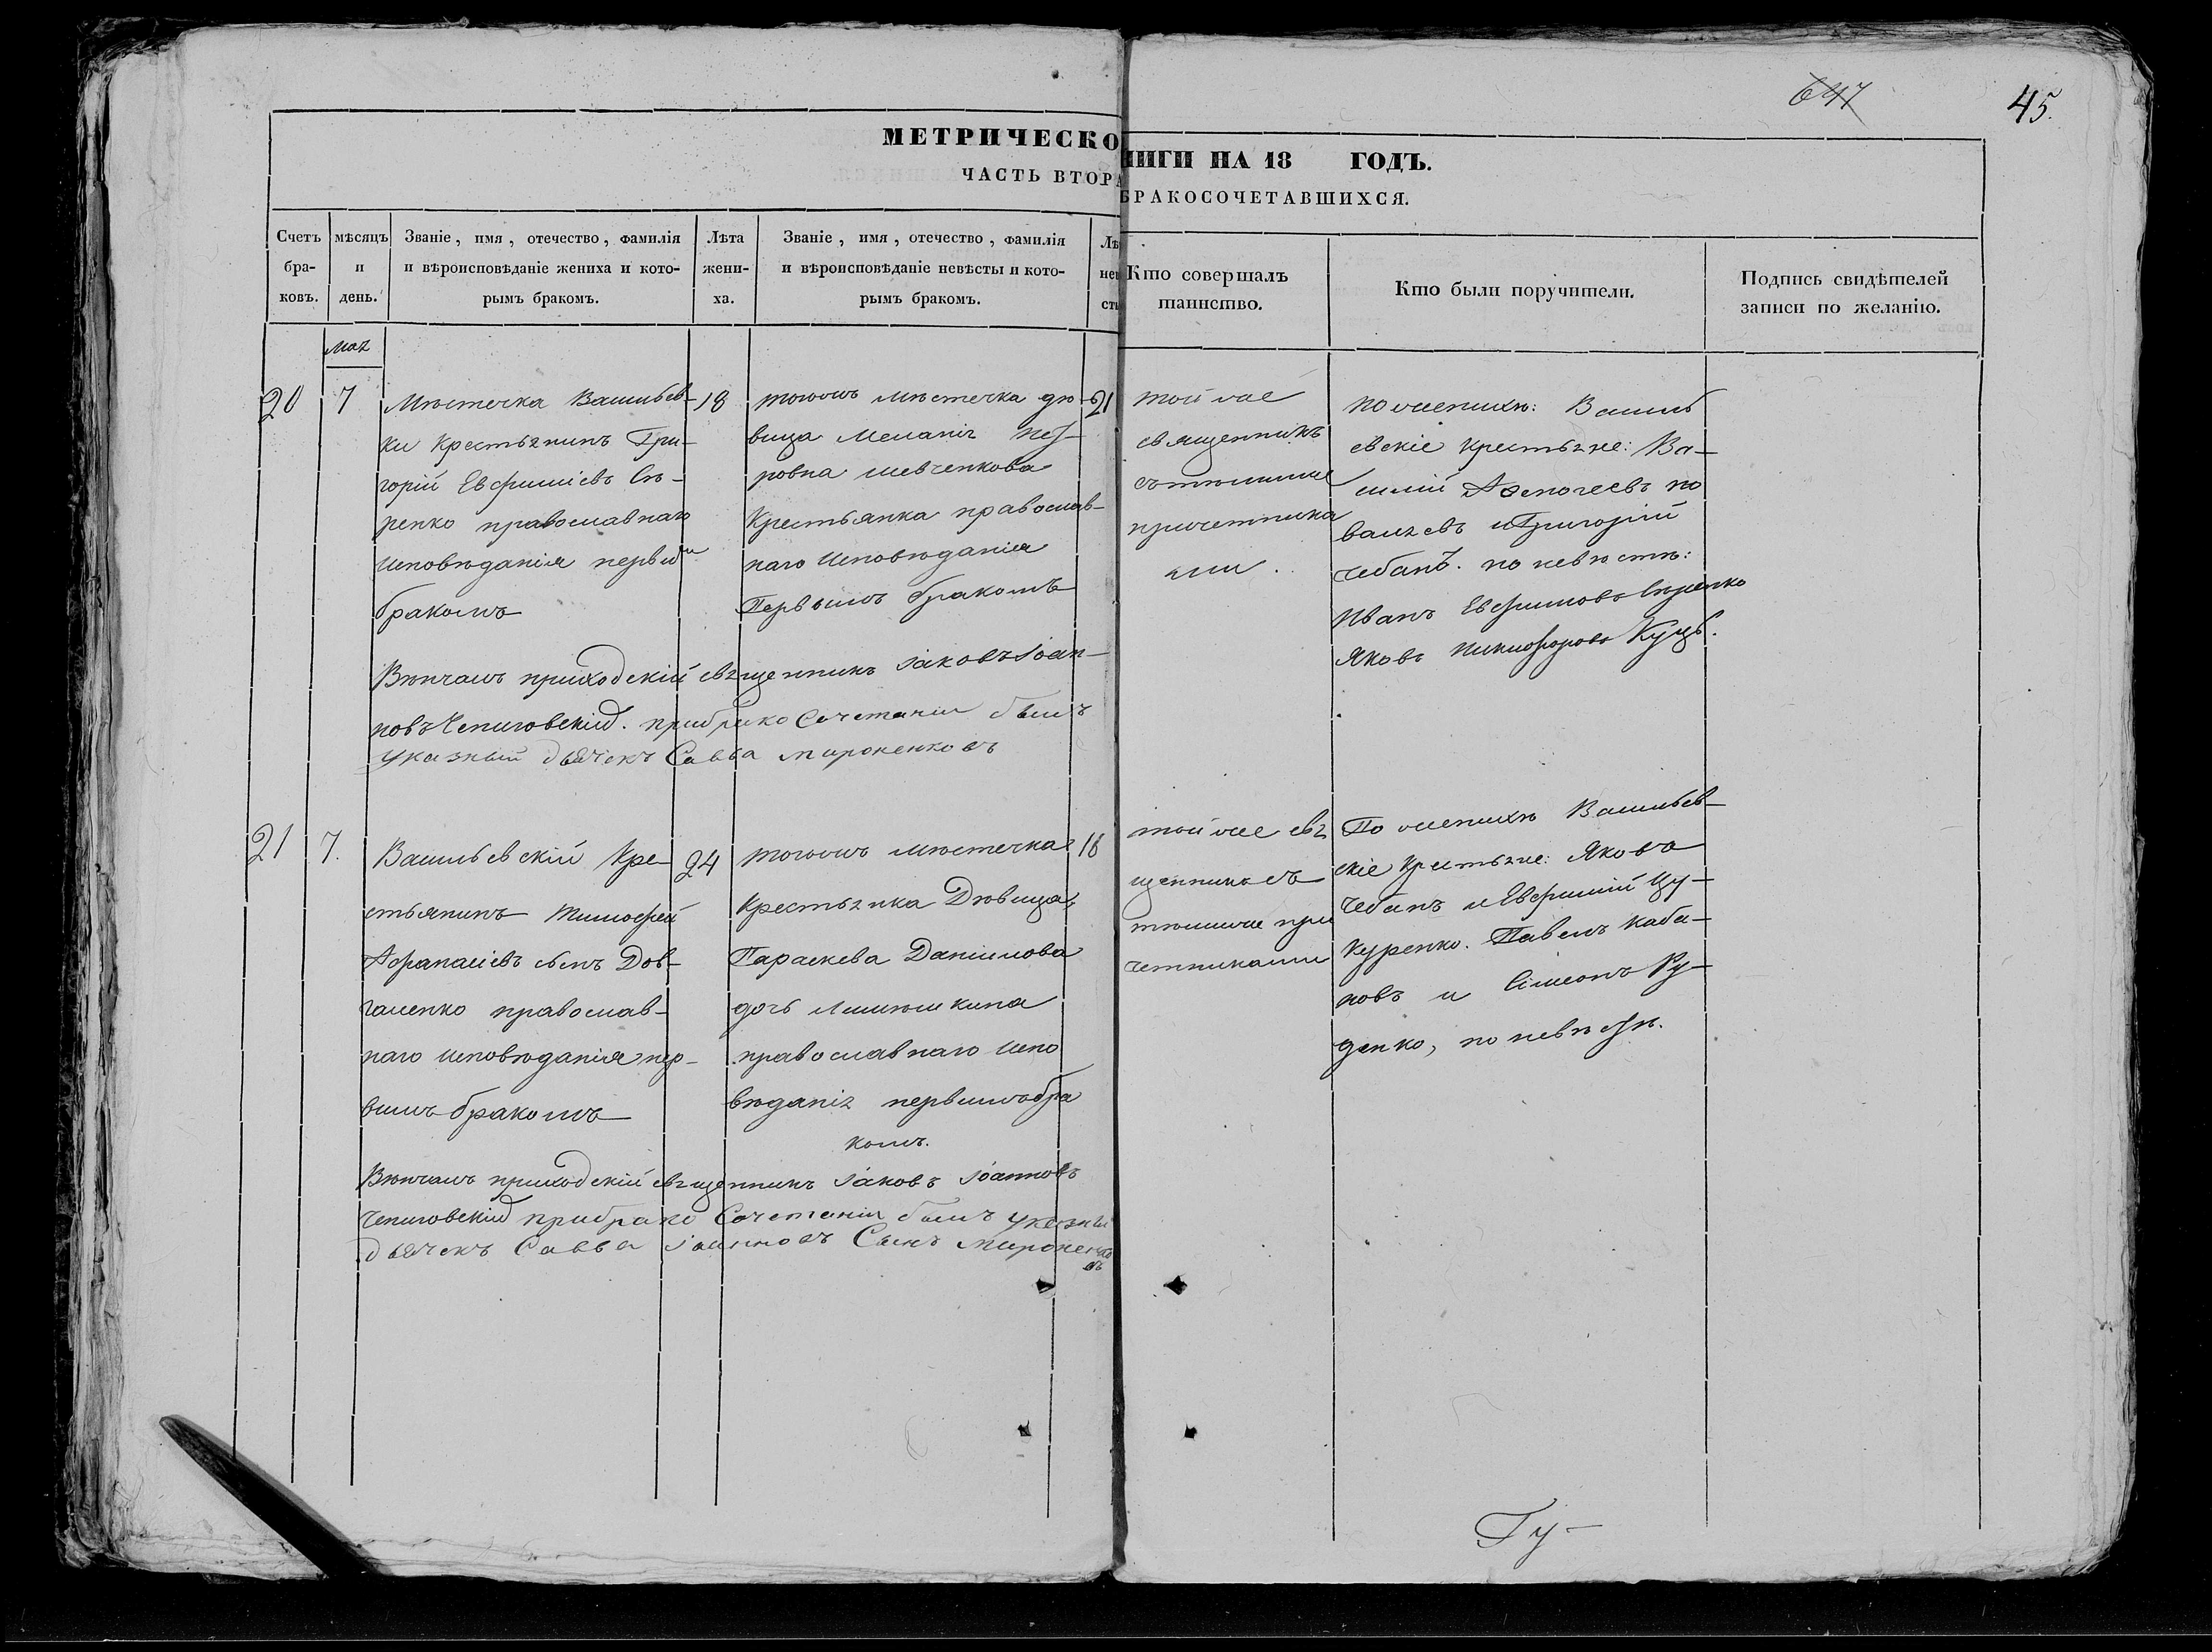 647
45.
МЕТРИЧЕСКО
НИГИ НА 18 ГОДЪ.
ЧАСТЬ ВТОРА
БРАКОСОЧЕТАВШИХСЯ.
Счетъ бра-ковъ.
мѣсяцъ и день.
Званіе, имя, отечество, фамилія
и вѣроисповѣданіе жениха и кото-
рымъ бракомъ.
Лѣта жени-ха.
Званіе, имя, отечество, фамилія
и вѣроисповѣданіе невѣсты и кото-
рымъ бракомъ.
Лѣ нев сты
Кто совершалъ
таинство.
Кто были поручители.
Подпись свидѣтелей
записи по желанію.
Мая
20
7
Мѣстечка Васильев-
ки крестьянинъ Гри-
горій Евфиміевъ Сѣ-
ренко православнаго
исповѣданія первым
бракомъ
18
тогожъ мѣстечка дѣ-
вица Меланія Пет-
ровна Шевченкова
Крестьянка православ-
наго исповѣданія
Первымъ бракомъ
21
той же
священникъ
съ тѣмиже
причетника
ми.
По женихѣ: Василь
евскіе крестьяне: Ва-
силій
и Григорій
Чебанъ. по невѣстѣ:
Иванъ Евфимовъ Сѣренко
Яковъ Никифоровъ Куцъ.
Вѣнчалъ приходскій священникъ Іаковъ Іоан-
новъ Чепиговскій. при брако сочетаніи былъ
Указный дьячекъ Савва Мироненковъ
21
7.
Васильевскій Кре-
стьянинъ Тимофей
Афанасіевъ сынъ Дов-
галенко православ-
наго исповѣданія пер-
вымъ бракомъ
24
тогожъ мѣстечка
Крестьянка Дѣвица
Параскева Даніилова
дочь
православнаго испо
вѣданія первымъ бра
комъ.
18
той же свя
щенникъ съ
тѣмиже при
четниками
По женихѣ Васильев-
скіе Крестьяне: Яковъ
Чебанъ и Евфимій Цу-
куренко. Павелъ Каба-
новъ и Сімеонъ Ру-
денко, по невѣстѣ.
Вѣнчалъ приходскій священникъ Іаковъ Іоанновъ
Чепиговскій при брако Сочетаніи былъ указный
дьячекъ Савва Іоанновъ Сынъ Мироненко
въ
Гу-